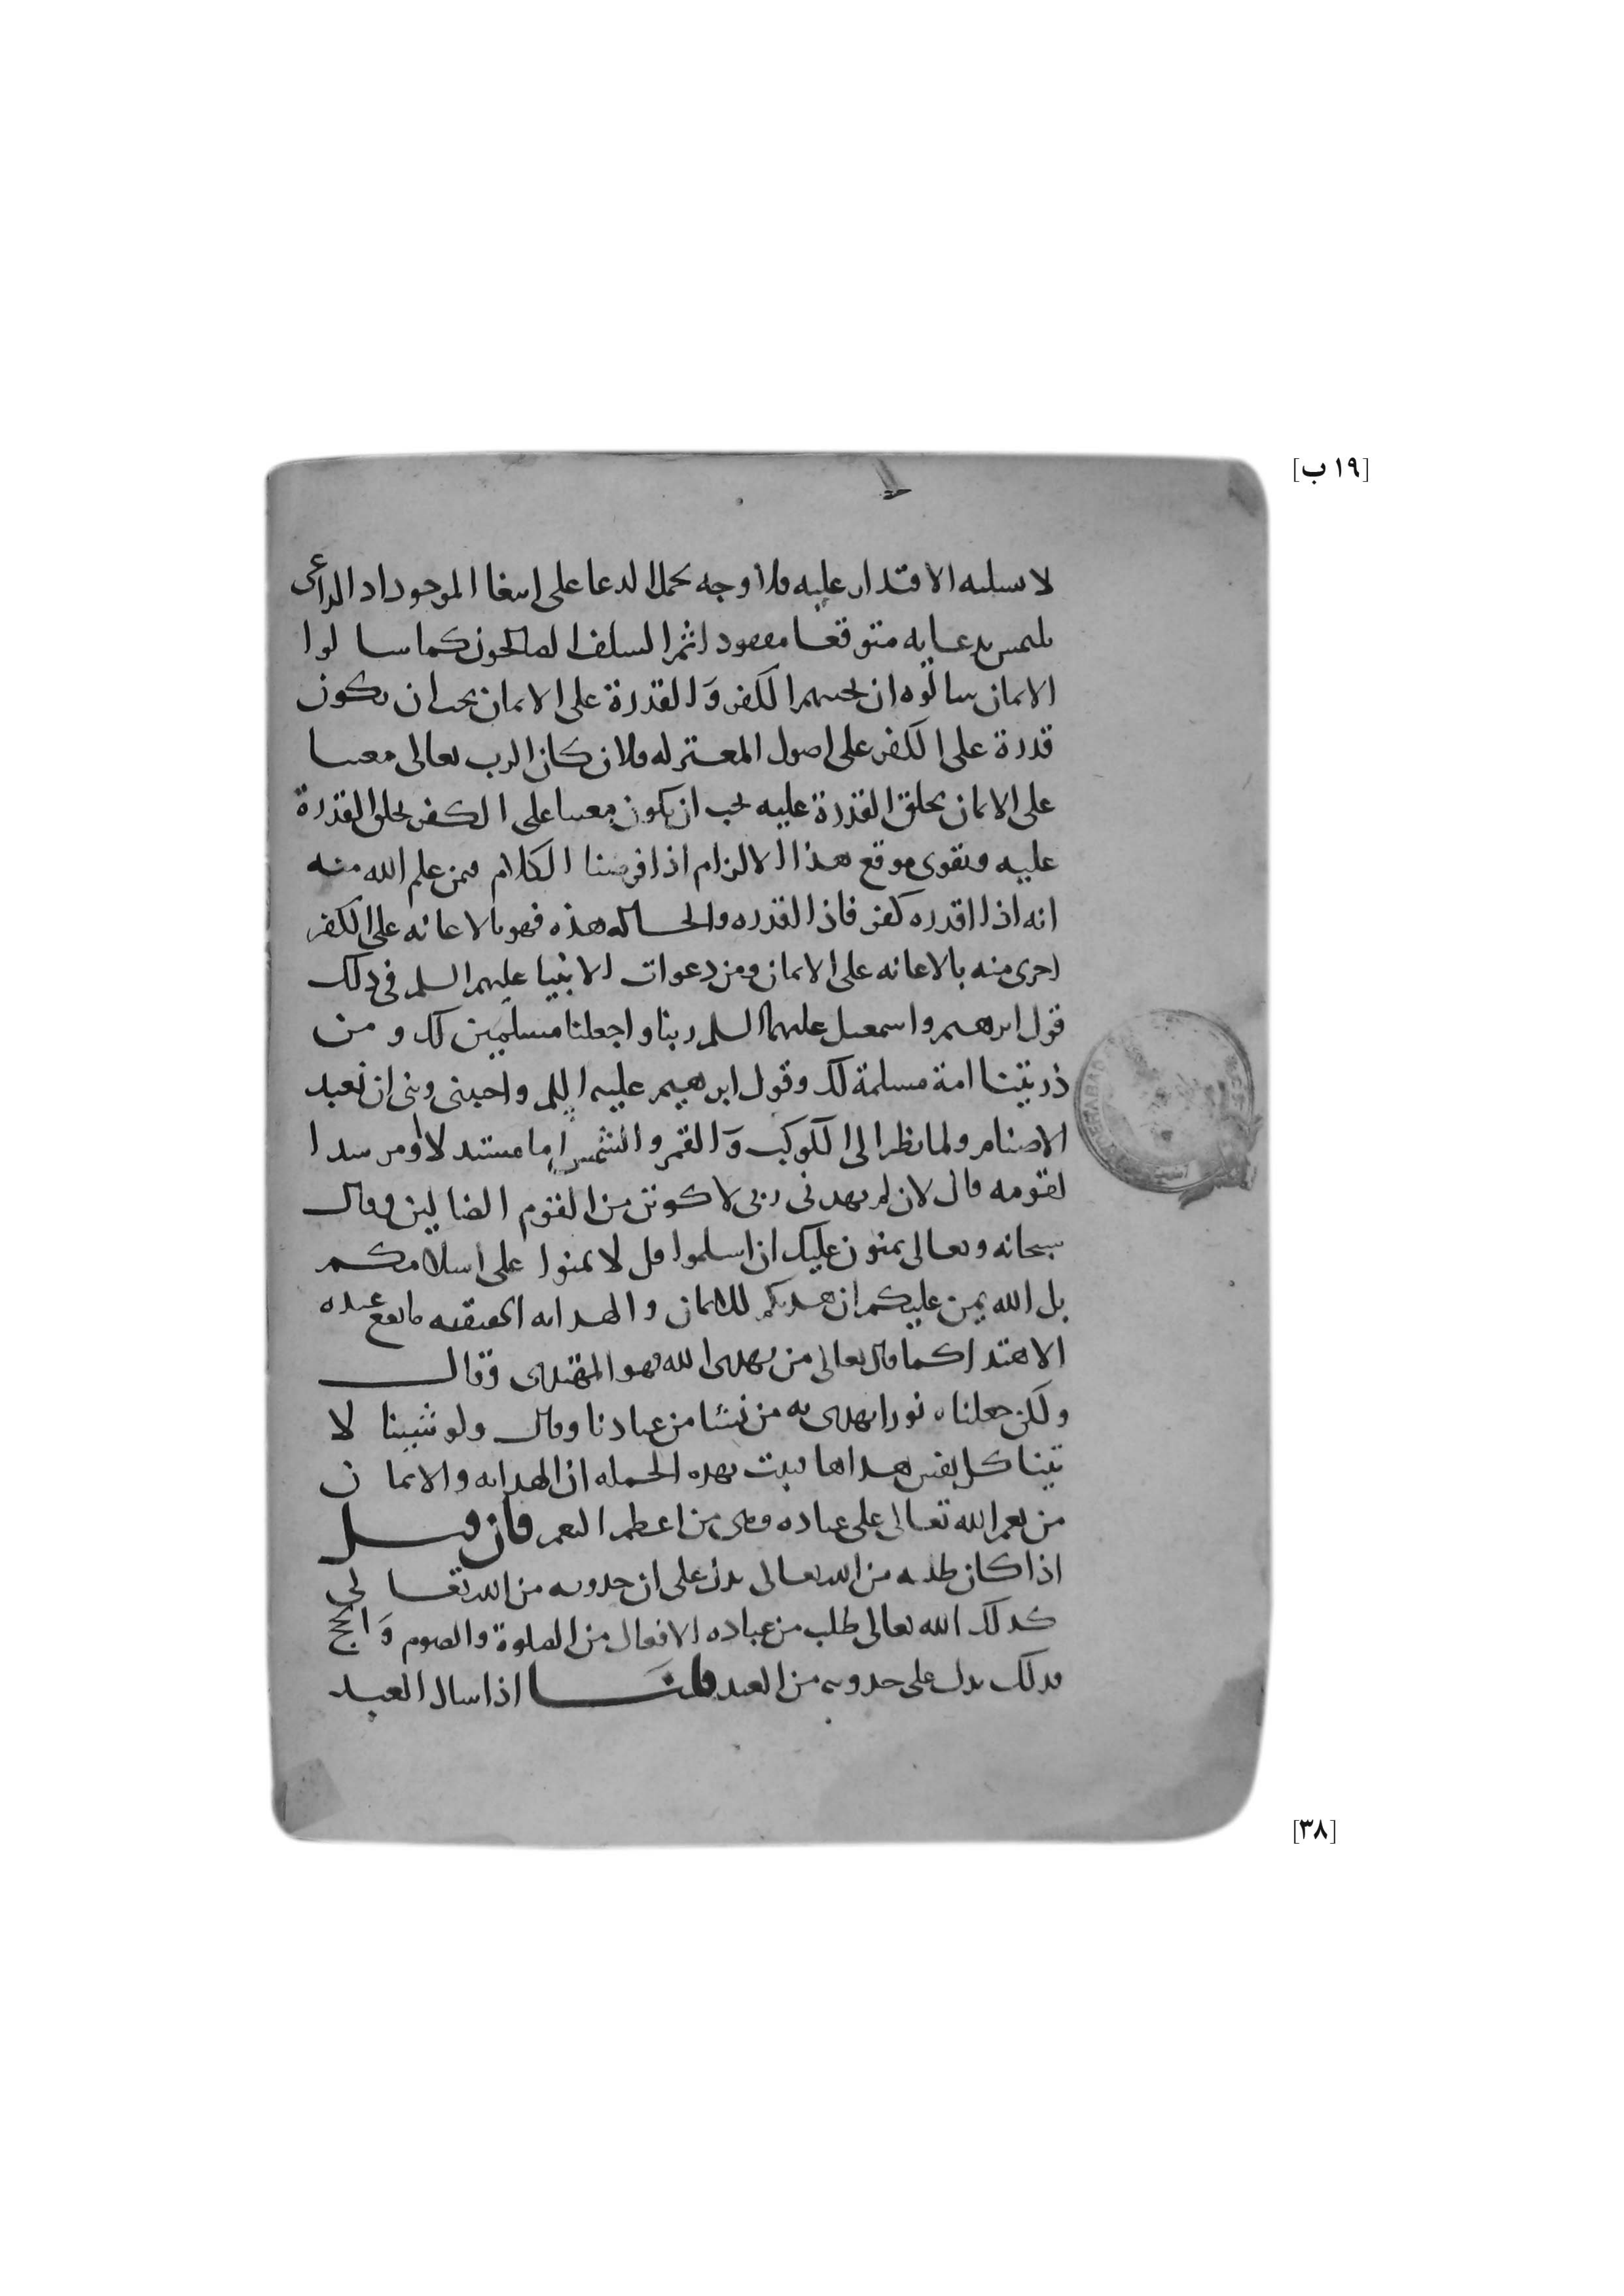 [١٩ ب]
لا يسلبه الاقتدار عليه فلا وجه لحمل الدعا على ابتغا الموجود اذ الداعي
يلتمس بدعايه متوقعا مفقود اثم السلف الصالحون كما سالوا
الايمان سالوه ان يجنبهم الكفر وَالقدرة على الايمان يجب ان يكون
قدرة على الكفر على اصول المعتزله فلان كان الرب تعالى معينا
على الايمان بخلق القدرة عليه يجب ان يكون معينا على الكفر بخلق القدرة
عليه ويقوى موقع هذا الالزام اذا فرضنا الكلام فيمن علم الله منه
انه اذا اقدره كفر فاذا القدره والحاله هذه فهو بالاعانه على الكفر
احرى منه بالاعانه على الايمان ومن دعوات الانبيا عليهم السلم في ذلك
قول ابرهيم واسمعيل عليهما السلم ربنا واجعلنا مسلمين لك ومن
ذريتنا امة مسلمة لك وقول ابرهيم عليه السلم واجنبني وبني ان نعبد
الاصنام ولما نظر الى الكوكب وَالقمر والشمس اما مستدلا او مرشدا
لقومه قال لان لم يهدني ربي لاكونن من القوم الضالين وقال
سبحانه وتعالى يمنون عليك ان اسلموا قل لا تمنوا على اسلامكم
بل الله يمن عليكم ان هديكم للايمان والهدايه الحقيقيه ما يقع عنده
الاهتدا كما قال تعالى من يهدى الله فهو المهتدى وقال
ولكن جعلناه نورا يهدى به من نشا من عبادنا وقال ولو شينا لا
تينا كل نفس هداها فثبت بهذه الجمله ان الهدايه والايمان
من نعم الله تعالى على عباده وهي من اعظم النعم فان قيل
اذا كان طلبه من الله تعالى يدل على ان حدوثه من الله تعالى
كذلك الله تعالى طلب من عباده الافعال من الصلوة والصوم وَالحج
فذلك يدل على حدوثه من العبد قلنا اذا سال العبد
[٣٨]